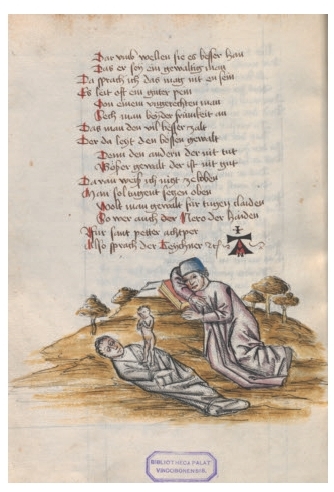 Dar umb wellen sie es besser han
Das er sey ein gewaltig man
Da sprach ich das mag nit en sein
Es leit oft ein guter
Von einem ungerechten man
Doch man
Das man den vil besser zalt
Der da leyt den bosen gewalt
Denn den andern der nit tut
Boser gewalt der ist gut
Dar an weiß ich nicht zeloben
Man sol tugent sehen oben
Wolt man gewalt für tugen claiden
So wer auch der Nero der haiden
Für sant petter
Also sprach der Teychner
BIBLIOTHECA PALAT.
VINDOBONENSIS.